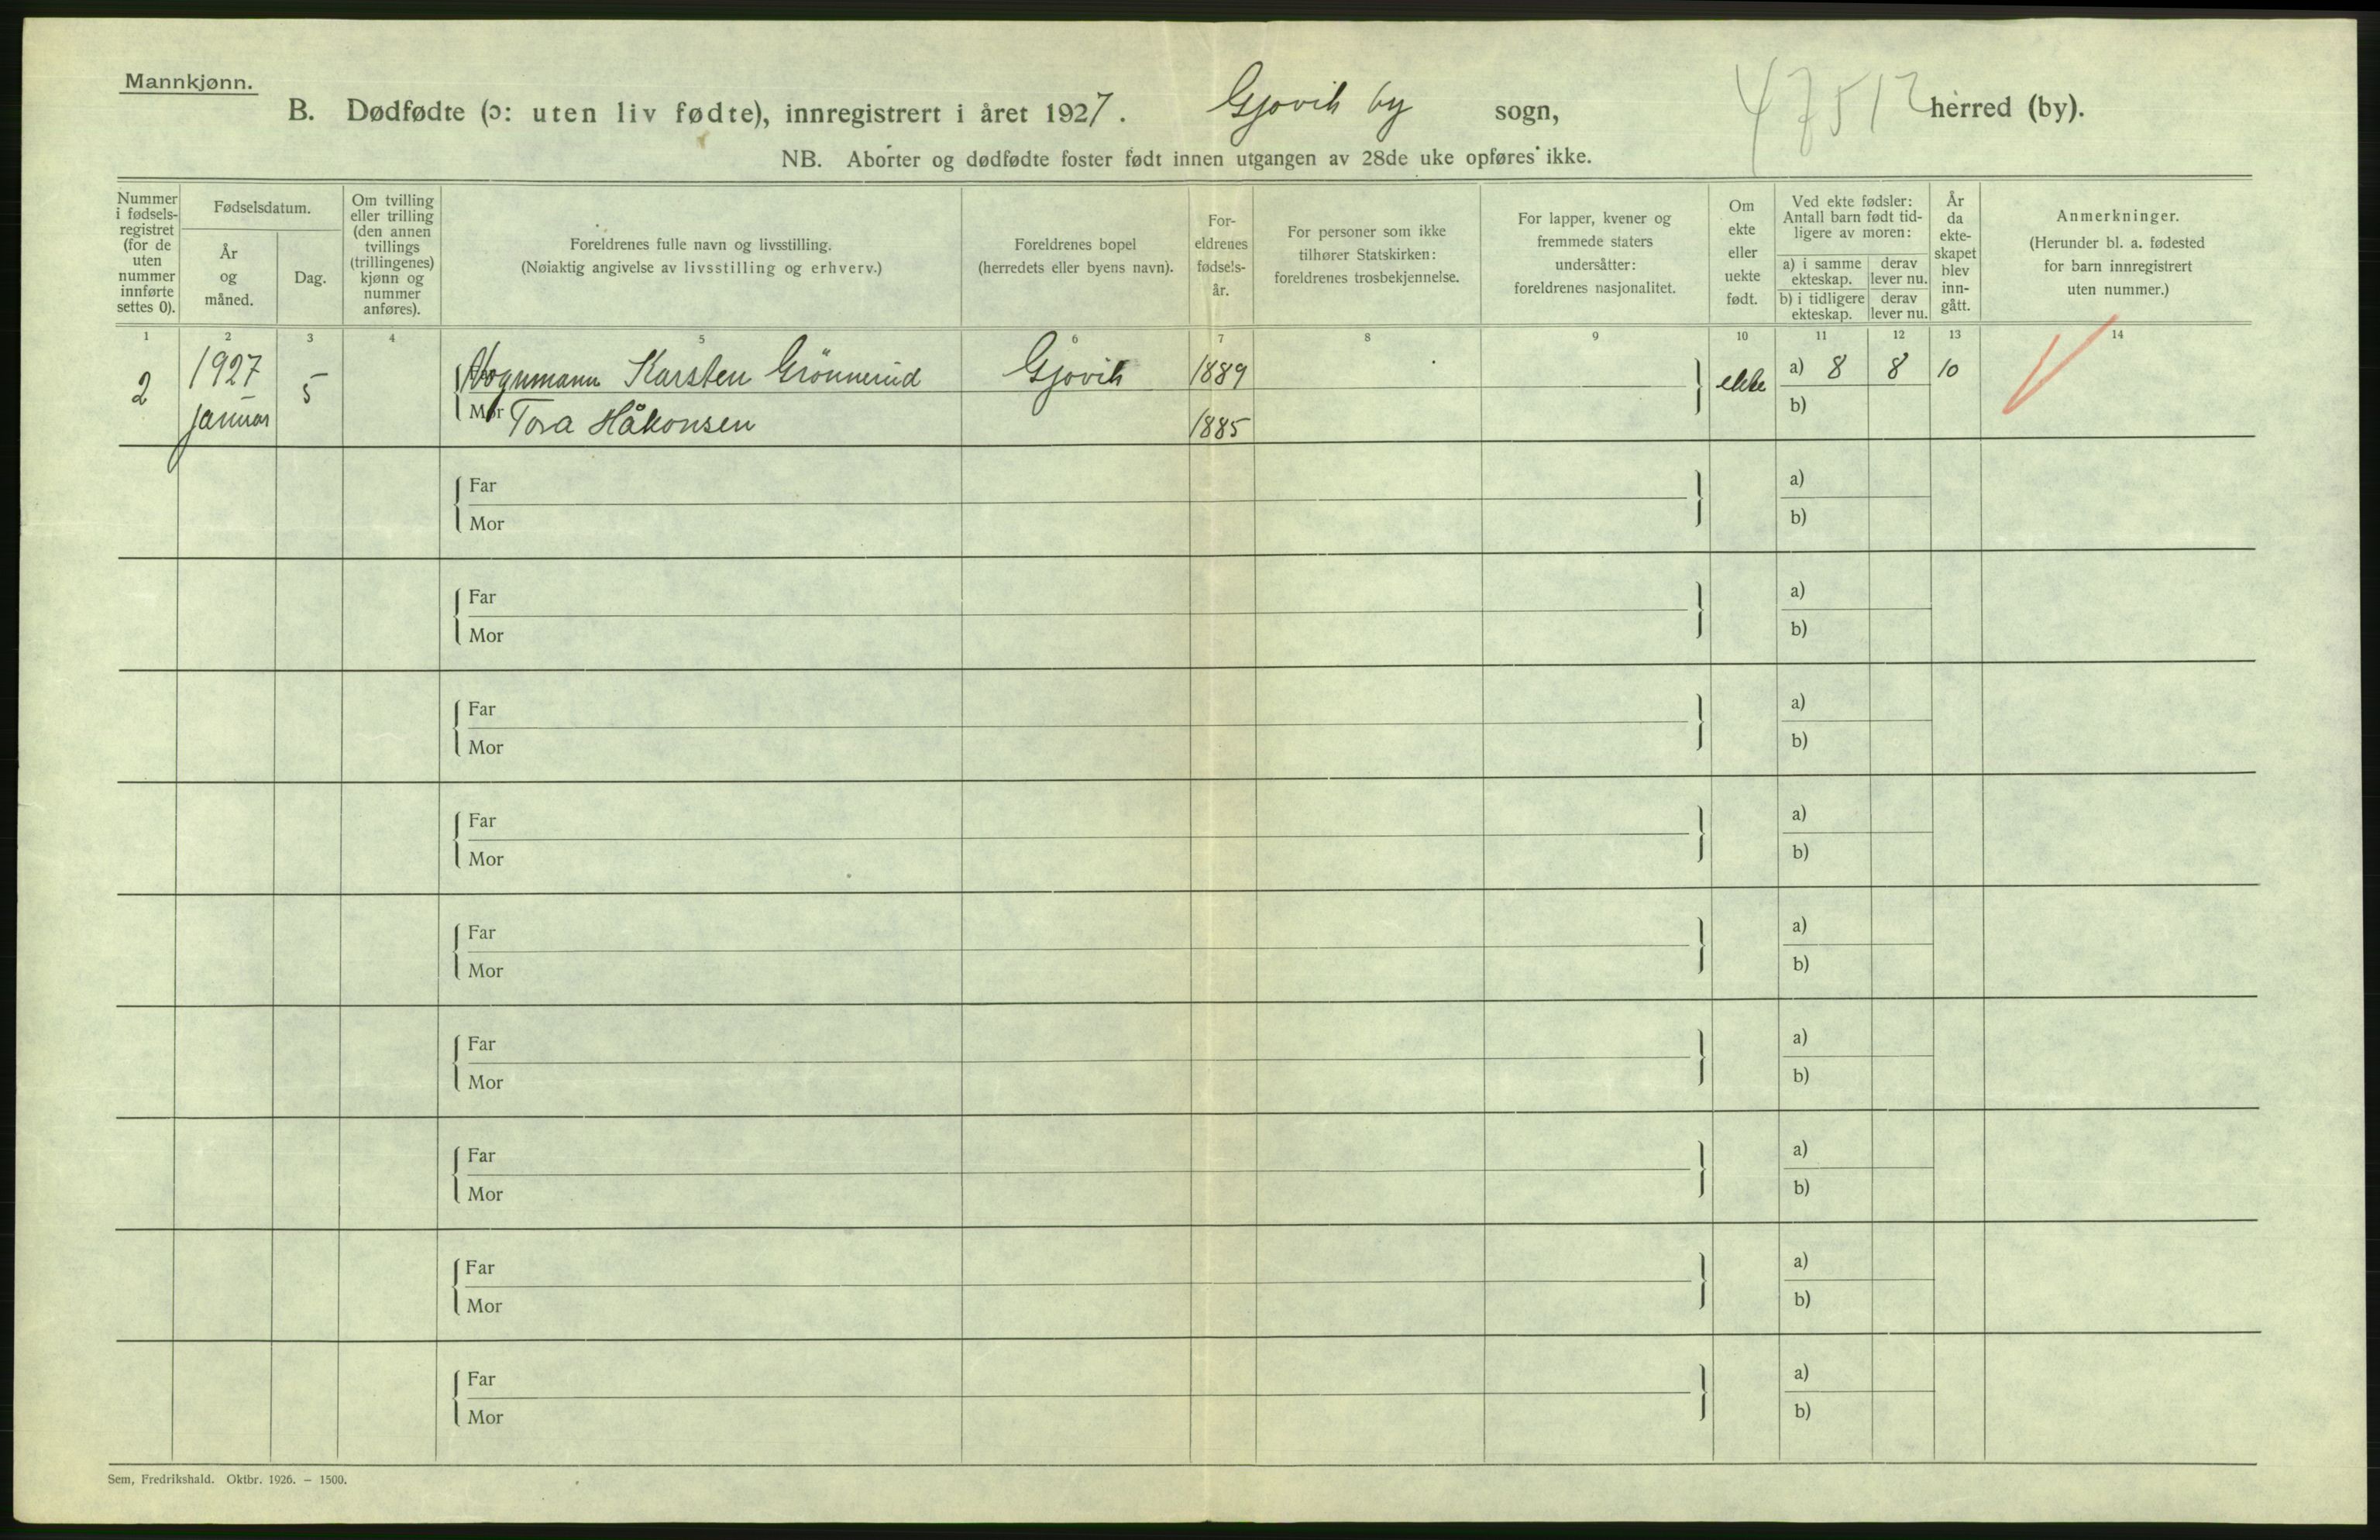 Mannkjønn.
B. Dødfødte (ɔ: uten liv fødte), innregistrert i året 1927. Gjøvik by sogn, herred (by).
NB. Aborter og dødfødte foster født innen utgangen av 28de uke opføres ikke.
Nummer
i fødsels-
registret
(for de
uten
nummer
innførte
settes 0).
Fødselsdatum.
År
og
måned.
Dag.
Om tvilling
eller trilling
(den annen
tvillings
(trillingenes)
kjønn og
nummer
anføres).
Foreldrenes fulle navn og livsstilling.
(Nøiaktig angivelse av livsstilling og erhverv.)
Foreldrenes bopel
(herredets eller byens navn).
For-
eldrenes
fødsels-
år.
For personer som ikke
tilhører Statskirken:
foreldrenes trosbekjennelse.
For lapper, kvener og
fremmede staters
undersåtter:
foreldrenes nasjonalitet.
Om
ekte
eller
uekte
født.
Ved ekte fødsler:
Antall barn født tid-
ligere av moren:
a) i samme
ekteskap.
derav
lever nu.
b) i tidligere
ekteskap.
derav
lever nu.
År
da
ekte-
skapet
blev
inn-
gått.
Anmerkninger.
(Herunder bl. a. fødested
for barn innregistrert
uten nummer.)
1 2 3 4 5 6 7 8 9 10 11 12 13 14
2 1927 januar 5 Vognmann Karsten Grönnerud Gjøvik 1889 ekte a) 8 8 10
Mor Tora Håkonsen 1885 b)
Far a)
Mor b)
Far a)
Mor b)
Far a)
Mor b)
Far a)
Mor b)
Far a)
Mor b)
Far a)
Mor b)
Far a)
Mor b)
Far a)
Mor b)
Far a)
Mor b)
Sem, Fredrikshald. Oktbr. 1926. — 1500.